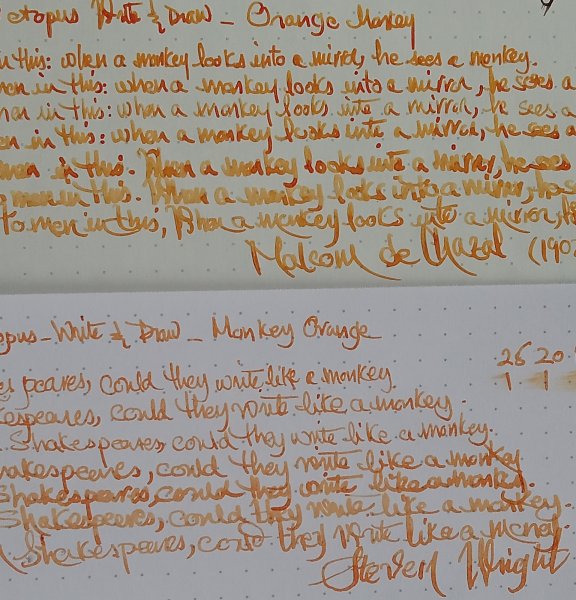 ctopus Write & Draw - Orange Monkey
n this: when a monkey looks into a mirror, he sees a monkey.
men in this: when a monkey looks into a mirror, he sees a
men in this: when a monkey looks into a mirror, he sees a
en in this: when a monkey looks into a mirror, he sees a
men in this. When a monkey looks into a mirror, he sees
men in this. When a monkey looks into a mirror, he se
to men in this, When a monkey looks into a mirror, he
Malcom de Chazal (190
opus - Write & Draw - Monkey Orange
25 20
es peares, could they write like a monkey.
1 1
kespeares, could they write like a monkey.
Shakespeares, could they write like a monkey.
hakespeares, could they write like a monkey
Shakespeares, could they write like a monkey.
Shakespeares, could they write like a monkey.
Shakespeares, could they write like a monkey.
Steven Wright